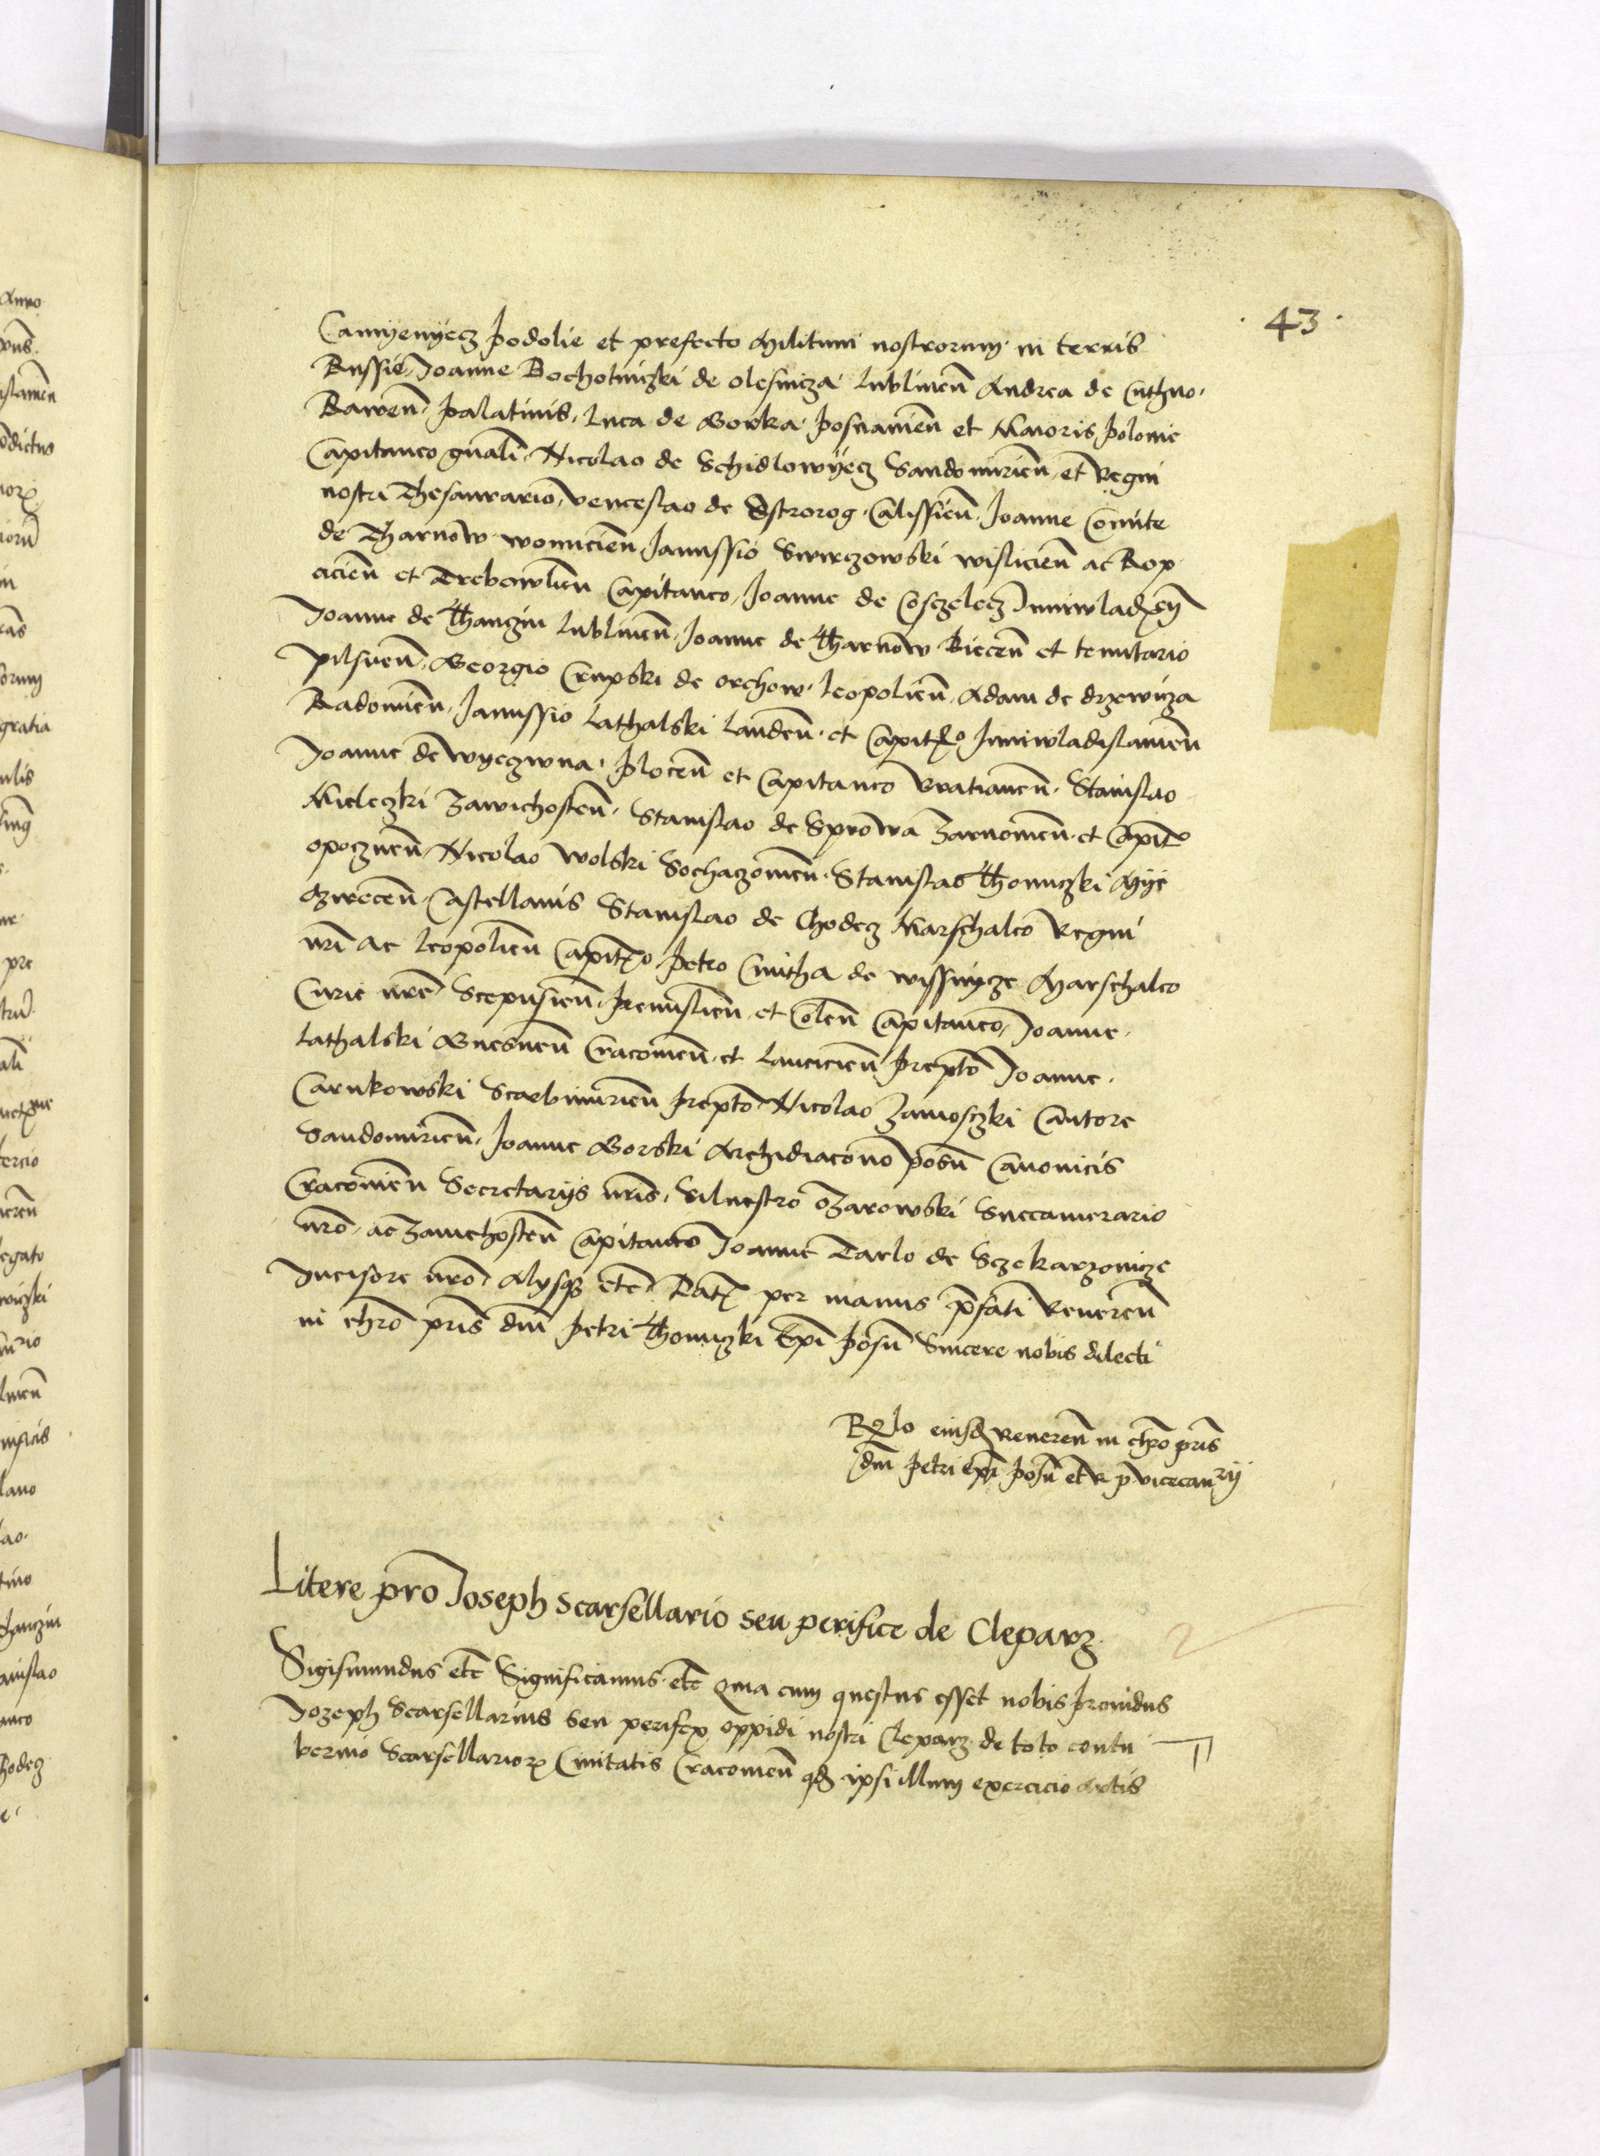 43
Camyenyecz podolie et prefecto militum nostrorum in terris
Russie, Joanne Bochotniczki de olesnicza lublinen̄ Andrea de Cuthno
Rawen̄ palatinis, luca de Gorka posnanien̄ et Maioris polonie
Capitaneo gn̄ali, Nicolao de Schidlowyecz Sandomirien̄ et Regni
nostri Thesaurario, venceslao de Ostrorog Calissien̄, Joanne Comite
de Tharnow woinicien̄ Janussio Swyrczowski wislicien̄ ac Rop
cicien̄ et Trebowlien̄ Capitaneo, Joanne de Cosczelecz
Joanne de Thanczin lublinen̄, Joanne de Tharnow Biecen̄ et tenutario
pilsnen̄, Georgio Crupski de orchow leopolien̄ Adam de drzewicza
Radomien̄, Janussio lathalski landen̄ et Capit̄o Juniwladislauien̄
Joanne de wyeczwna plocen̄ et Capitaneo Gratianen̄ Stanislao
Mieleczki zawichosten̄, Stanislao de Sprowa zarnowien̄ et Capit̄o
opocznen̄, Nicolao wolski Sochaczouien̄, Stanislao Thomiczki Mye
dzirecen̄, Castellanis Stanislao de Chodecz Marschalco Regni
nr̄i ac leopolien̄ Capit̄o petro Cmitha de wissnycze Marschalco
Curie nr̄e Scepusien̄, premislien̄ et Colen̄ Capitaneo, Joanne
lathalski Gnesnen̄ Cracouien̄ et lancicien̄ prepto Joanne
Carnkowski Scarbimirien̄ prepto, Nicolao zamosczki Cantore
Sandomirien̄, Joanne Gorski Archidiacono posn̄ Canonicis
Cracouien̄ Secretarijs nr̄is, Siluestro ozarowski Succamerario
nr̄o ac zauichosten̄ Capitaneo Joanne Tarlo de Sczekarzowicze
Incisore nr̄o Alijsq3 etc̄ Dat̄ per manus p̄fati Reueren̄
in chr̄o pr̄is dn̄i petri Thomiczki Ep̄i posn̄ Sincere nobis dilecti
R̄lo eiusd̄ Reueren̄ in chr̄o pr̄is
dn̄i petri ep̄i posn̄ et R p̄ vicecan̄rij
Litere pro Joseph scarsellario seu perifice de Cleparz
2
Sigismundus etc̄ Significamus etc̄ Quia cum questus esset nobis prouidus
Jozeph Scarsellarius seu perifex oppidi nostri Cleparz de toto contu
bernio Scarsellarior̄ Ciuitatis Cracouien̄ qd̄ ipsi illum exercicio artis